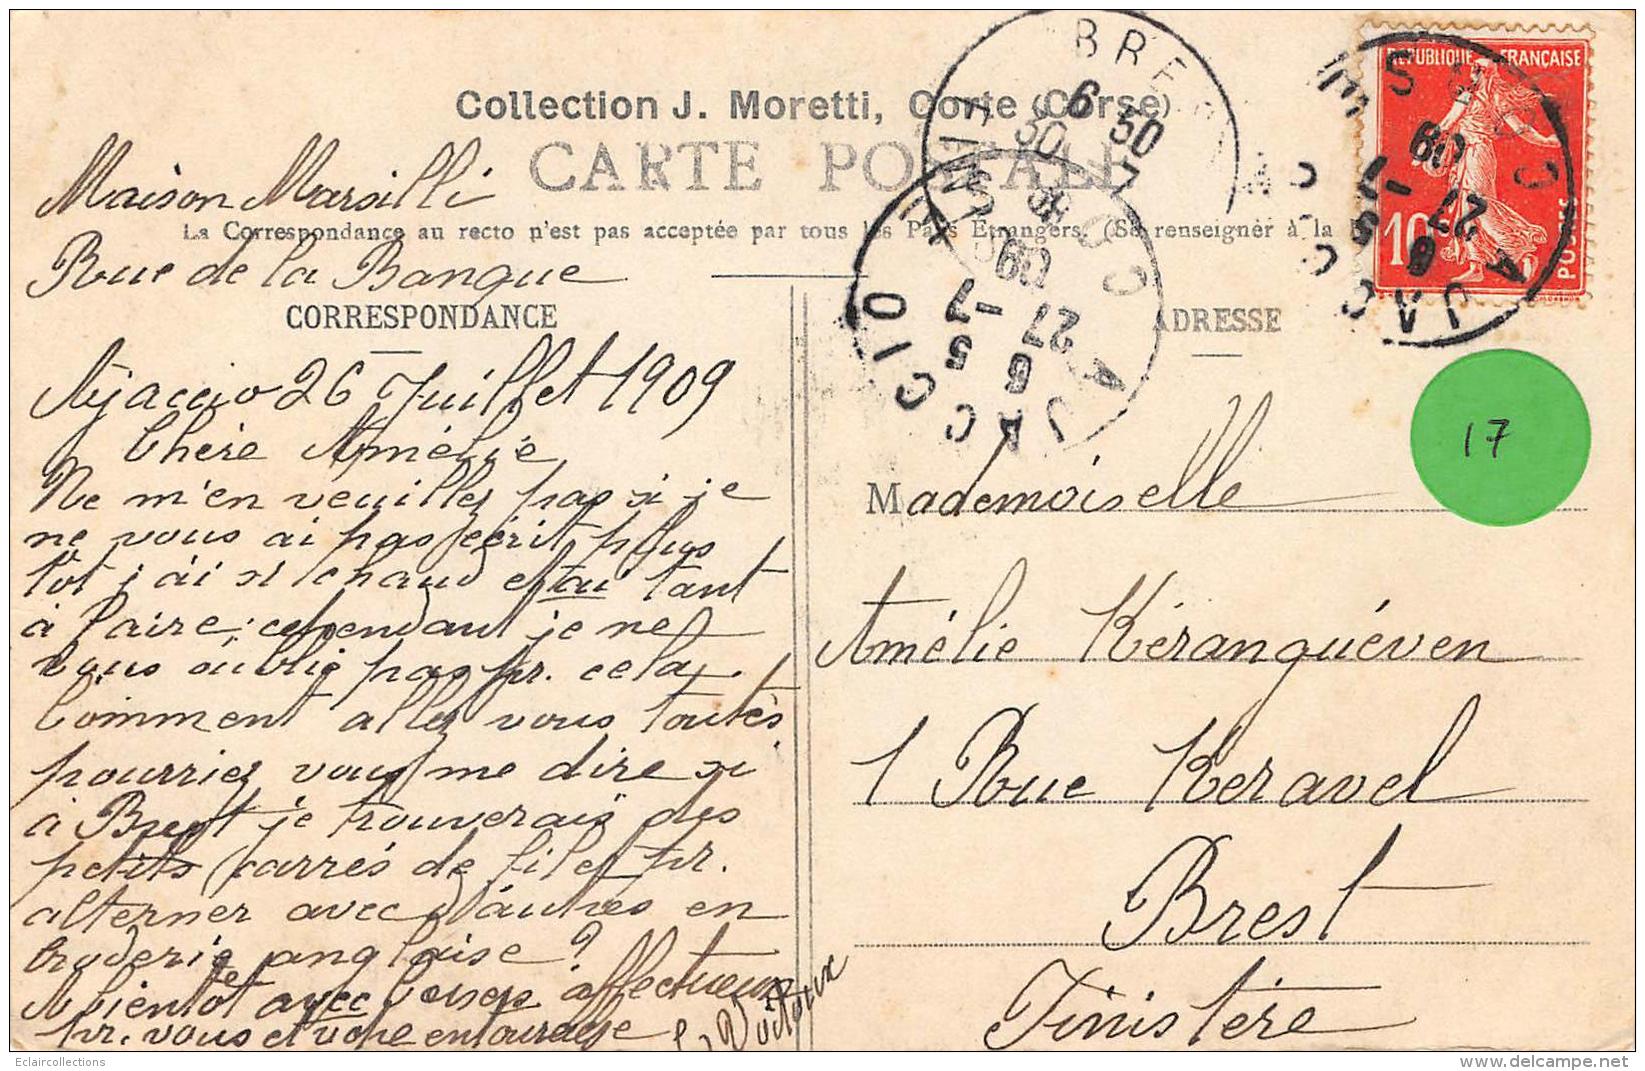 Collection J. Moretti, Corte (Corse)
CARTE POSTALE
Maison Marsilli
La Correspondance au recto n'est pas acceptée par tous les Pays Etrangers. (Se renseigner à la
Rue de la Banque
CORRESPONDANCE
ADRESSE
Ajaccio 26 Juillet 1909
Chère Amélie
Ne m'en veuillez pas si je
ne vous ai pas écrit plus
tôt j'ai si chaud et ai tant
à faire; cependant je ne
vous oublie pas pr. cela.
Comment allez vous toutes
pourriez vous me dire si
à Brest je trouverais des
petits carrés de filet pr.
alterner avec d'autres en
broderie anglaise?
A bientôt avec baisers affectueux
pr. vous et votre entourage
Mademoiselle
Amélie Kéranguéven
1 Rue Keravel
Brest
Finistère
REPUBLIQUE FRANÇAISE
10
POSTES
BREST
6 30
30 7
09
FINISTERE
AJACCIO
CORSE
6 5
27 -7
09
AJACCIO
CORSE
6 5
27 -7
09
17
Eclaircollections
www.delcampe.net